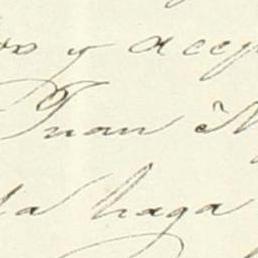 y acep
Juan
la haga